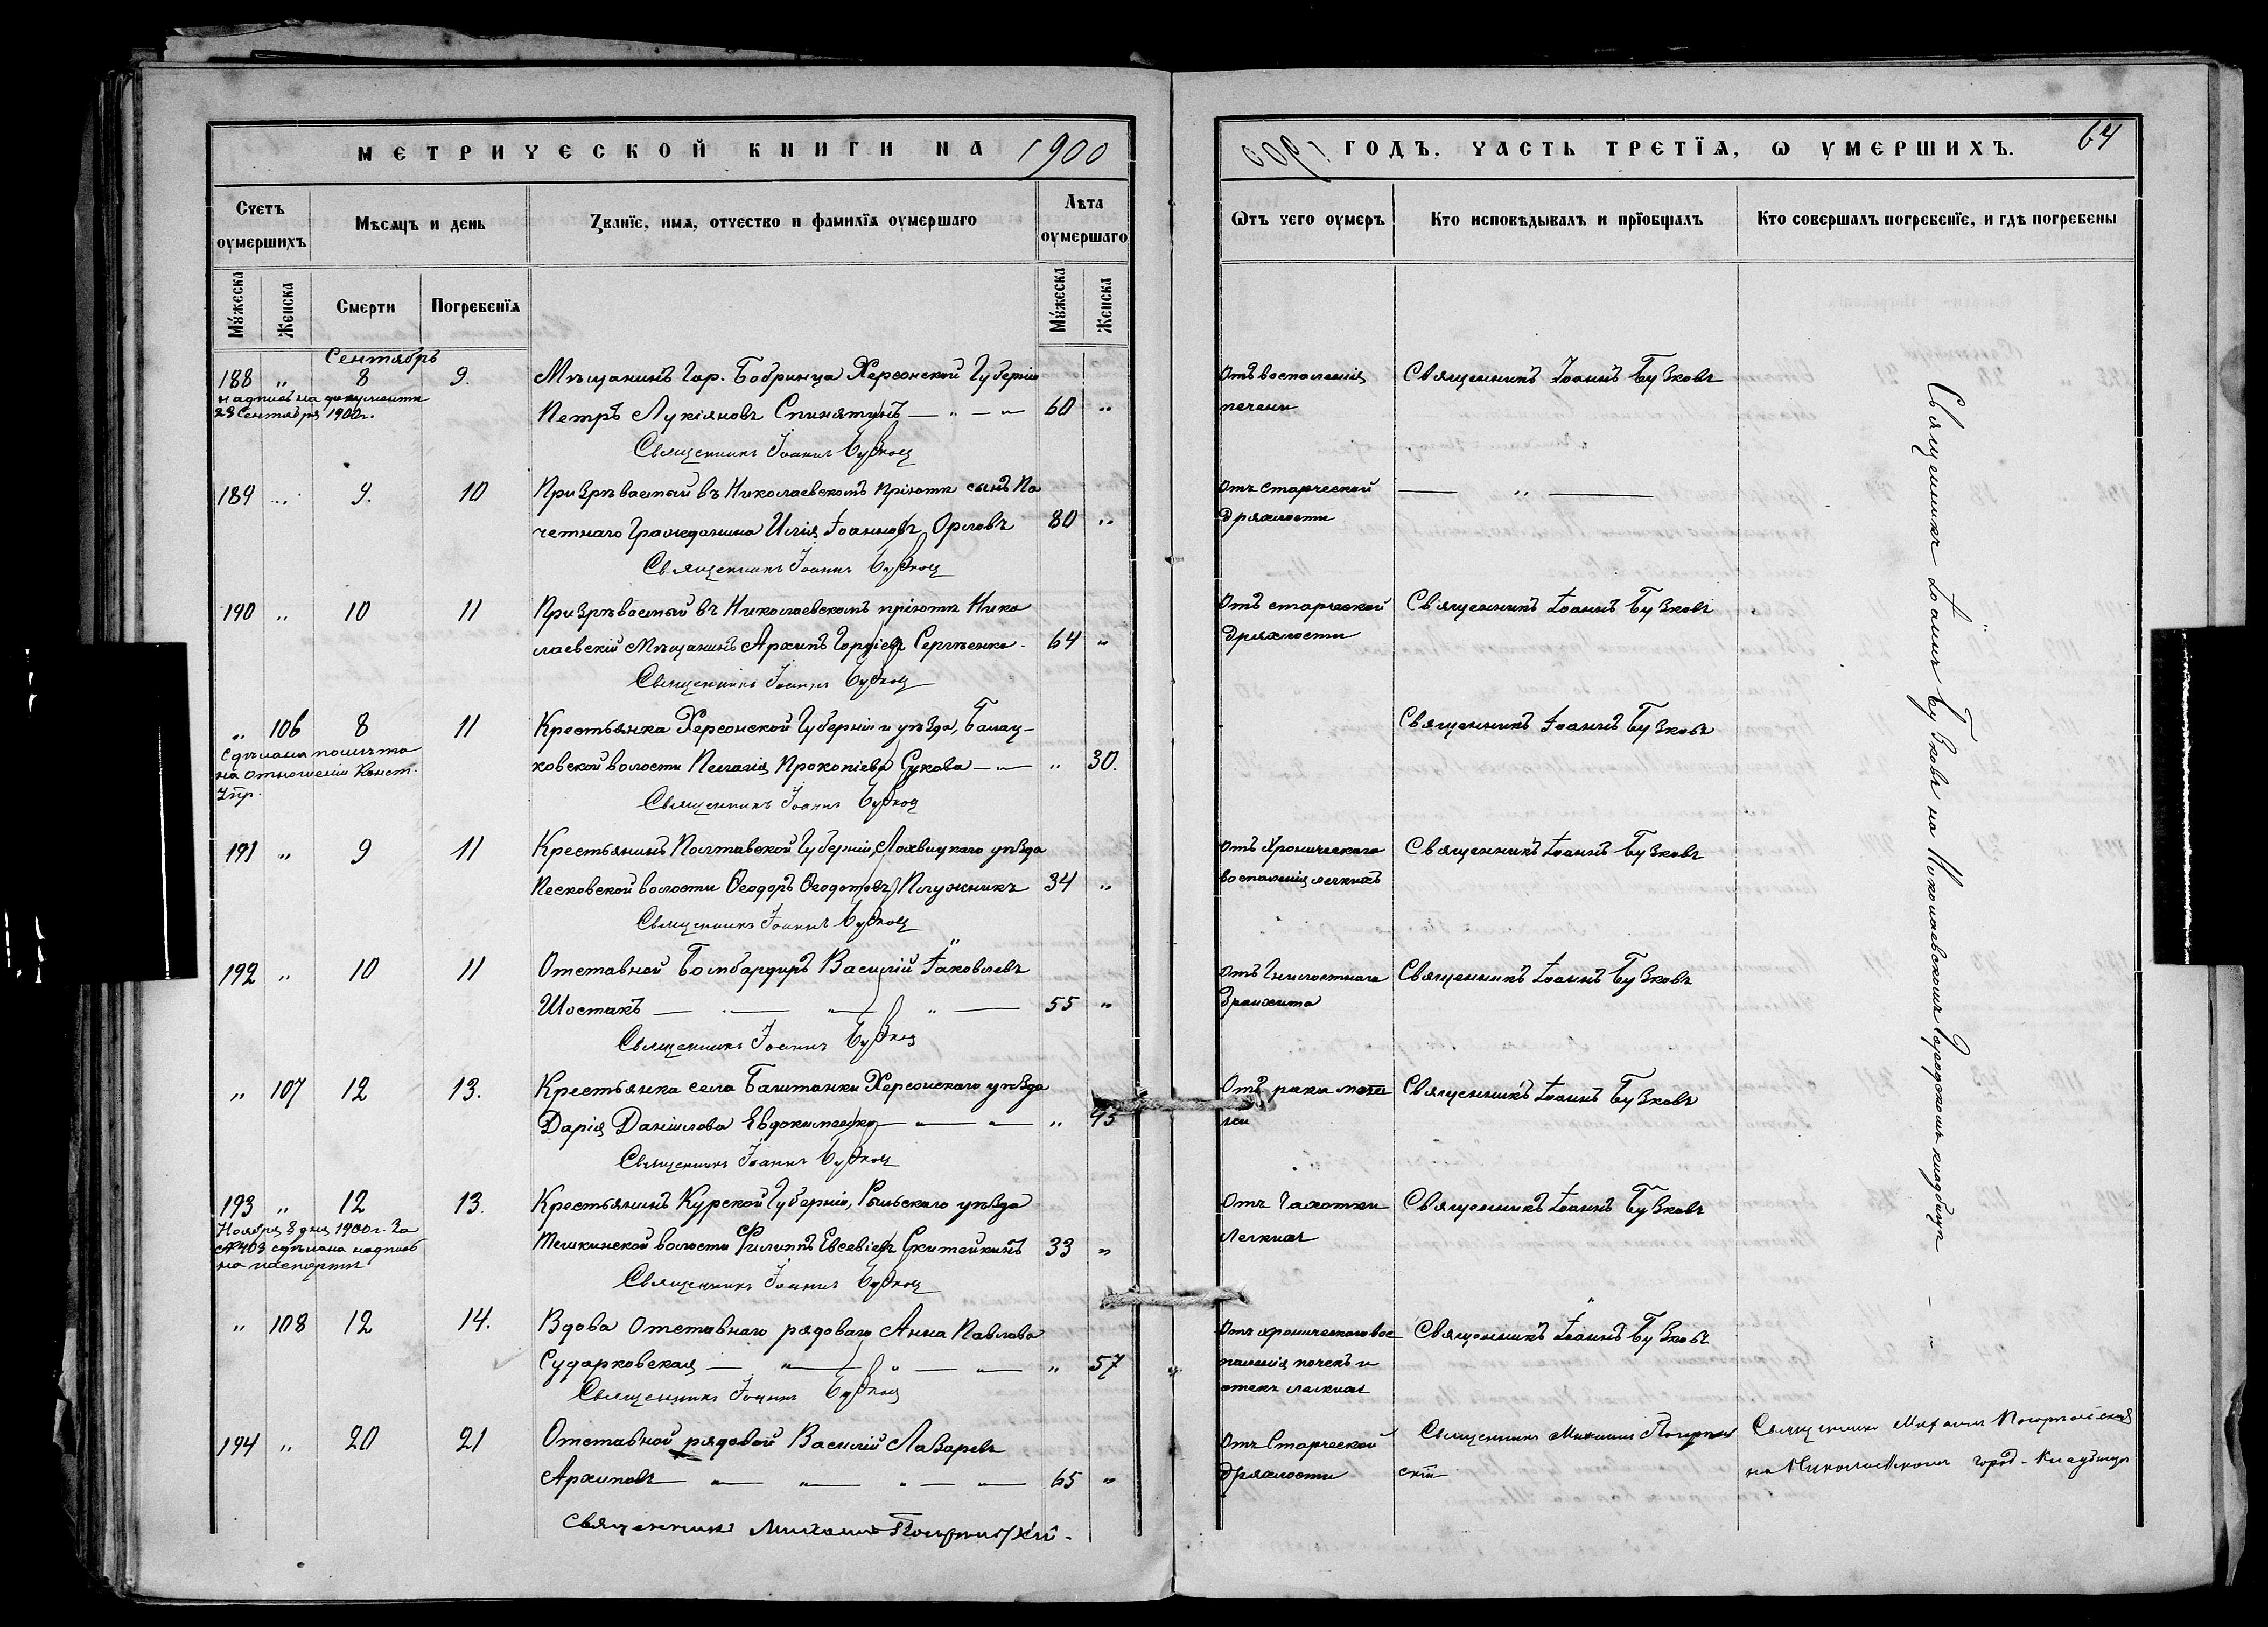 МЕТРИЧЕСКОЙ КНИГИ НА 1900
Счетъ оумершихъ
Мѣсяцъ и день
Званїе, имя, отчество и фамилїя оумершаго
Лѣта оумершаго
Мужеска
Женска
Смерти
Погребенїя
Мужеска
Женска
Сентябрь
188 " 8 9. Мѣщанинъ Гор. Бобринца Херсонской Губерніи
надпись на документѣ
28 Сентября 1900 г.
Петръ Лукіяновъ Спинятунъ — " — " 60 "
Священникъ Іоаннъ Бузковъ
189 " 9. 10 Призрѣваемый въ Николаевскомъ пріютѣ сынъ По
четнаго Гражданина Илія Іоанновъ Орловъ 80 "
Священникъ Іоаннъ Бузковъ
190 " 10 11 Призрѣваемый въ Николаевскомъ пріютѣ Нико
лаевскій Мѣщанинъ Архипъ Гордіевъ Сергѣенко. 64 "
Священникъ Іоаннъ Бузковъ
" 106 8 11 Крестьянка Херсонской Губерніи и уѣзда, Балац-
Сдѣлана помѣтка
на отношеніи Конст.
ковской волости Пелагія Прокопіева Сукова — " — " 30.
Упр.
Священникъ Іоаннъ Бузковъ
191 " 9 11 Крестьянинъ Полтавской Губерніи, Лохвицкаго уѣзда
Песковской волости Ѳеодоръ Ѳеодотовъ Плужникъ 34 "
Священникъ Іоаннъ Бузковъ
192 " 10 11 Отставной Бомбардиръ Василій Іаковлевъ
Шостакъ — " — " — " — 55 "
Священникъ Іоаннъ Бузковъ
" 107 12 13. Крестьянка села Баштанки Херсонскаго уѣзда
Дарія Даніилова Евдокименко — " — " — " 45
Священникъ Іоаннъ Бузковъ
193 " 12 13. Крестьянинъ Курской Губерніи, Рыльскаго уѣзда
Ноября 8 дня 1900 г. За
№ 403 сдѣлана надпись
на паспортѣ
волости Филиппъ Евсевіевъ Скитейкинъ 33 "
Священникъ Іоаннъ Бузковъ
" 108 12 14. Вдова Отставнаго рядоваго Анна Павлова
Сударковская — " — " — " — " 57
Священникъ Іоаннъ Бузковъ
194 " 20 21 Отставной рядовой Василій Лазаревъ
Архиповъ " — " — " — " — 65 "
Священникъ Михаилъ
1900 ГОДЪ, ЧАСТЬ ТРЕТЇЯ, Ѡ УМЕРШИХЪ. 64
Ѿтъ чего оумеръ
Кто исповѣдывалъ и прїобщалъ
Кто совершалъ погребенїе, и гдѣ погребены
Отъ воспаленія Священникъ Іоаннъ Бузковъ
печени
Отъ старческой — " —
дряхлости
Отъ старческой Священникъ Іоаннъ Бузковъ
дряхлости
Священникъ Іоаннъ Бузковъ
Отъ Хроническаго Священникъ Іоаннъ Бузковъ
воспаленія легкихъ
Отъ Гнилостнаго Священникъ Іоаннъ Бузковъ
бронхита
Отъ рака Священникъ Іоаннъ Бузковъ
Отъ Чахотки Священникъ Іоаннъ Бузковъ
Легкихъ
Отъ хроническаго вос Священникъ Іоаннъ Бузковъ
паленія почекъ и
отекъ легкихъ
Отъ Старческой Священникъ Михаилъ
дряхлости скій
Священникъ Іоаннъ Бузковъ на Николаевскомъ Городскомъ кладбищѣ
Священникъ Михаилъ
на Николаевскомъ город. Кладбищѣ